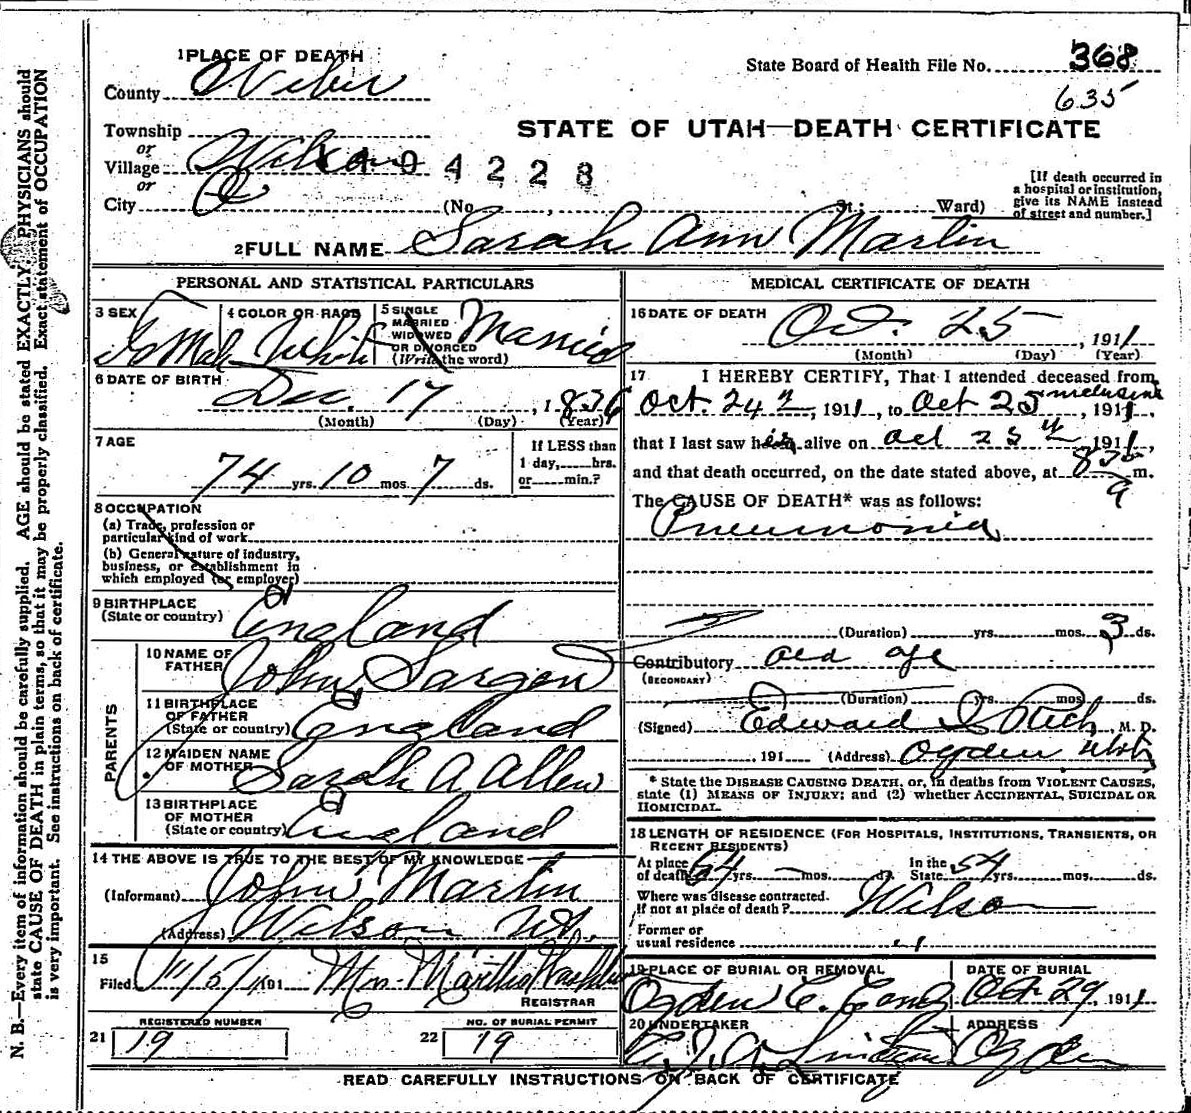 1 PLACE OF DEATH
State Board of Health File No. 368
County Weber
635
Township
STATE OF UTAH—DEATH CERTIFICATE
or
Village Wilson 04228
or
City (No. , St.; Ward)
[If death occurred in a hospital or institution, give its NAME instead of street and number.]
2 FULL NAME Sarah Ann Martin
PERSONAL AND STATISTICAL PARTICULARS
3 SEX Femal
4 COLOR OR RACE White
5 SINGLE MARRIED WIDOWED OR DIVORCED (Write the word) Married
6 DATE OF BIRTH Dec. 17, 1836
(Month) (Day) (Year)
7 AGE 74 yrs. 10 mos. 7 ds.
If LESS than 1 day, hrs. or min.?
8 OCCUPATION
(a) Trade, profession or
particular kind of work
(b) General nature of industry,
business, or establishment in
which employed (or employer)
9 BIRTHPLACE
(State or country) England
PARENTS
10 NAME OF
FATHER John Sargen
11 BIRTHPLACE
OF FATHER
(State or country) England
12 MAIDEN NAME
OF MOTHER Sarah A Allen
13 BIRTHPLACE
OF MOTHER
(State or country) England
14 THE ABOVE IS TRUE TO THE BEST OF MY KNOWLEDGE
(Informant) John Martin
(Address) Wilson Ut.
15
Filed 11/5/1911 Mrs. Martha
REGISTRAR
REGISTERED NUMBER
21 19
NO. OF BURIAL PERMIT
22 19
MEDICAL CERTIFICATE OF DEATH
16 DATE OF DEATH Oct. 25, 1911
(Month) (Day) (Year)
17 I HEREBY CERTIFY, That I attended deceased from
Oct. 24th, 1911, to Oct 25 inclusive, 1911,
that I last saw her alive on Oct 25th 1911,
and that death occurred, on the date stated above, at 830 m.
The CAUSE OF DEATH* was as follows:
Pneumonia
(Duration) yrs. mos. 3 ds.
Contributory old age
(SECONDARY)
(Duration) yrs. mos. ds.
(Signed) Edward I Rich, M. D.
191 (Address) Ogden Utah
* State the DISEASE CAUSING DEATH, or, in deaths from VIOLENT CAUSES,
state (1) MEANS OF INJURY; and (2) whether ACCIDENTAL, SUICIDAL OR
HOMICIDAL.
18 LENGTH OF RESIDENCE (FOR HOSPITALS, INSTITUTIONS, TRANSIENTS, OR
RECENT RESIDENTS)
At place of death 54 yrs. — mos. ds. In the State 54 yrs. mos. ds.
Where was disease contracted.
If not at place of death? Wilson
Former or
usual residence "
19 PLACE OF BURIAL OR REMOVAL
Ogden C.
DATE OF BURIAL
Oct 29, 1911
20 UNDERTAKER
ADDRESS
Ogden
READ CAREFULLY INSTRUCTIONS ON BACK OF CERTIFICATE
N. B.—Every item of information should be carefully supplied. AGE should be stated EXACTLY. PHYSICIANS should
state CAUSE OF DEATH in plain terms, so that it may be properly classified. Exact statement of OCCUPATION
is very important. See instructions on back of certificate.